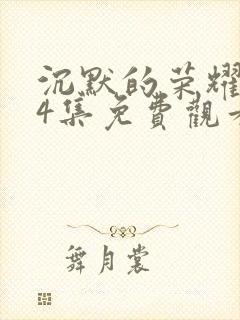 沉默的荣耀
4集免費觀
舞月裳